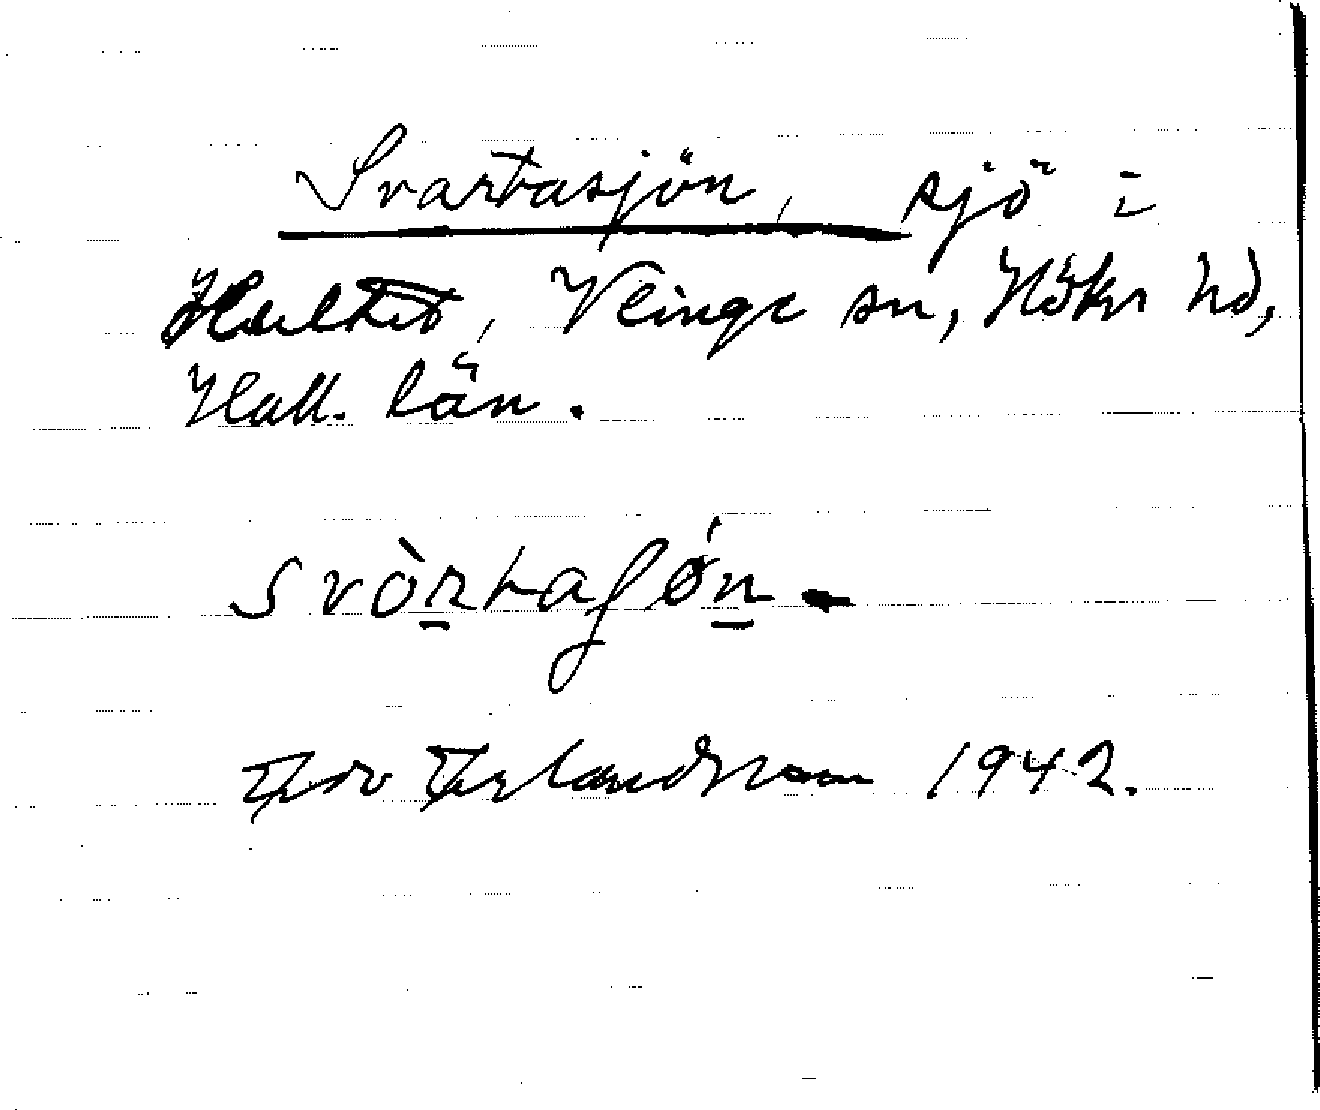 Svartasjön, sjö i
Hultet, Veinge sn, Höks hd,
Hall. län.
svòrtaʃǿn
Erlandsson 1942.